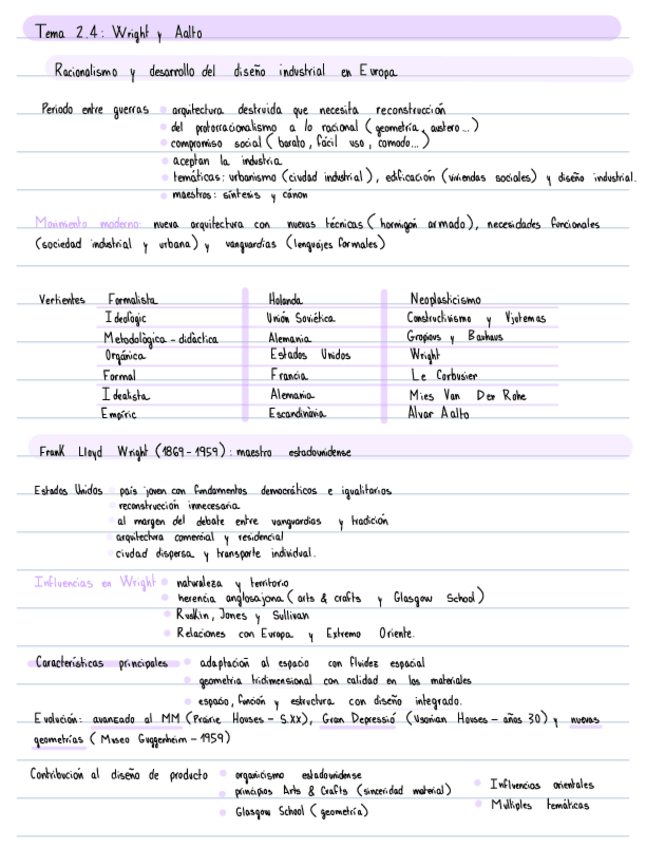 Tema 2.4: Wright y Aalto
Racionalismo y desarrollo del diseño industrial en Europa
Periodo entre guerras • arquitectura destruida que necesita reconstrucción
• del protorracionalismo a lo racional (geometría, austero...)
• compromiso social (barato, fácil uso, comodo...)
• aceptan la industria
• temáticas: urbanismo (ciudad industrial), edificación (viviendas sociales) y diseño industrial.
• maestros: síntesis y cánon
Movimiento moderno: nueva arquitectura con nuevas técnicas (hormigón armado), necesidades funcionales
(sociedad industrial y urbana) y vanguardias (lenguajes formales)
Vertientes Formalista Holanda Neoplasticismo
Ideològic Unión Soviética Constructivismo y Vjutemas
Metodològica - didàctica Alemania Gropious y Bauhaus
Orgánica Estados Unidos Wright
Formal Francia Le Corbusier
Idealista Alemania Mies Van Der Rohe
Empíric Escandinávia Alvar Aalto
Frank Lloyd Wright (1869-1959): maestro estadounidense
Estados Unidos • país joven con fundamentos democráticos e igualitarios
• reconstrucción innecesaria
• al margen del debate entre vanguardias y tradición
• arquitectura comercial y residencial
• ciudad dispersa y transporte individual.
Influencias en Wright • naturaleza y territorio
• herencia anglosajona (arts & crafts y Glasgow School)
• Ruskin, Jones y Sullivan
• Relaciones con Europa y Extremo Oriente.
Características principales • adaptación al espacio con fluidez espacial
• geometría tridimensional con calidad en los materiales
• espacio, función y estructura con diseño integrado.
Evolución: avanzado al MM (Prairie Houses - S.XX), Gran Depressió (Usonian Houses - años 30) y nuevas
geometrías (Museo Guggenheim - 1959)
Contribución al diseño de producto • organicismo estadounidense
• principios Arts & Crafts (sinceridad material)
• Glasgow School (geometría)
• Influencias orientales
• Multiples temáticas